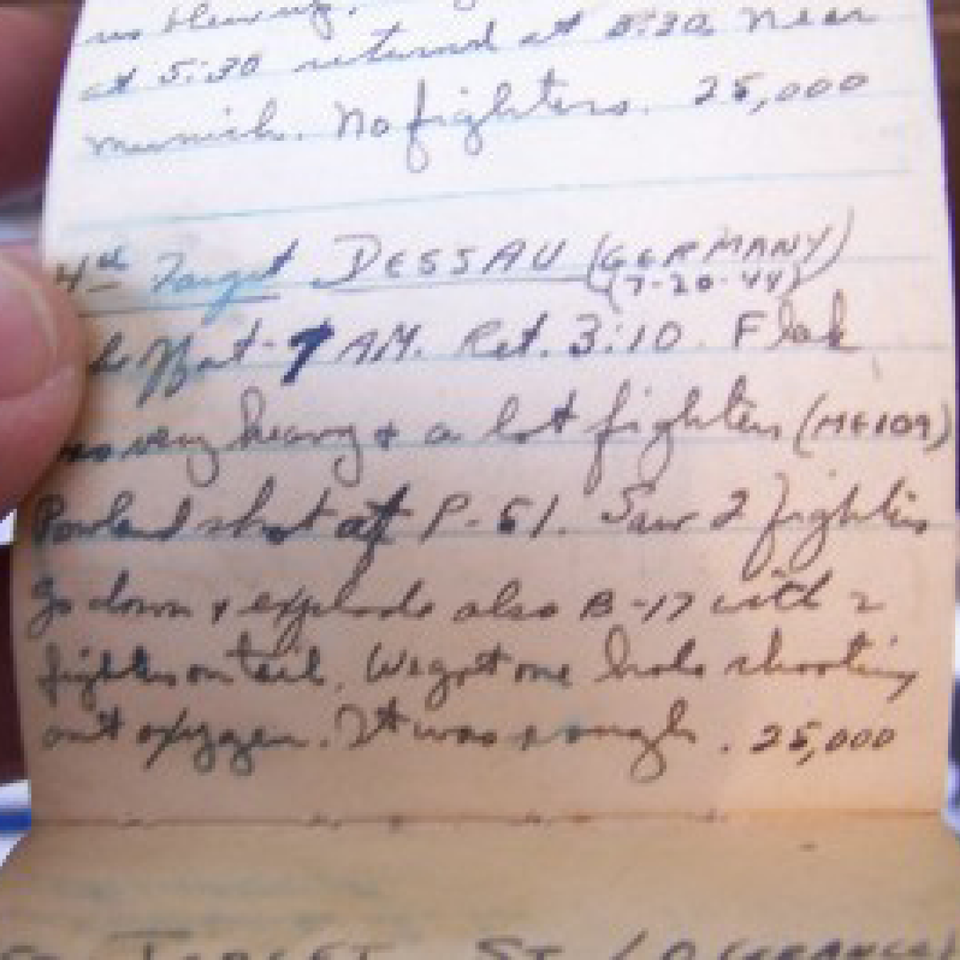 blewup.
at 5:30 returned at 8:30. Near
munich. No fighters. 25,000
4th Target DESSAU (GERMANY)
(7-20-44)
at - 9 AM. Ret. 3:10. Flak
was very heavy & a lot fighters (ME109)
Rowland shot at P-51. Saw 2 fighters
go down & explode also B-17 with 2
fighters on tail. We got one hole shooting
out oxygen. It was rough. 25,000
TARGET ST. LO (FRANCE)